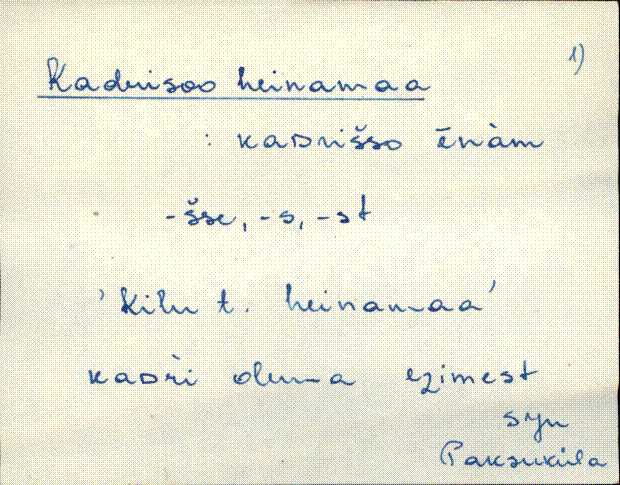 1)
Kadrisoo heinamaa
: kaᴅriššo ēnàm
-šše, -s, -st
'Kilu t. heinamaa'
kaᴅri oluma ezimest
syn
Paksuküla